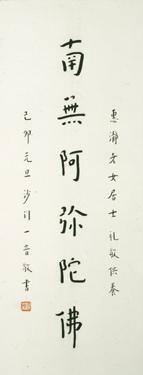 惠瀞老女居士礼敬供養
南無阿弥陀佛
己卯元旦沙门一音敬書